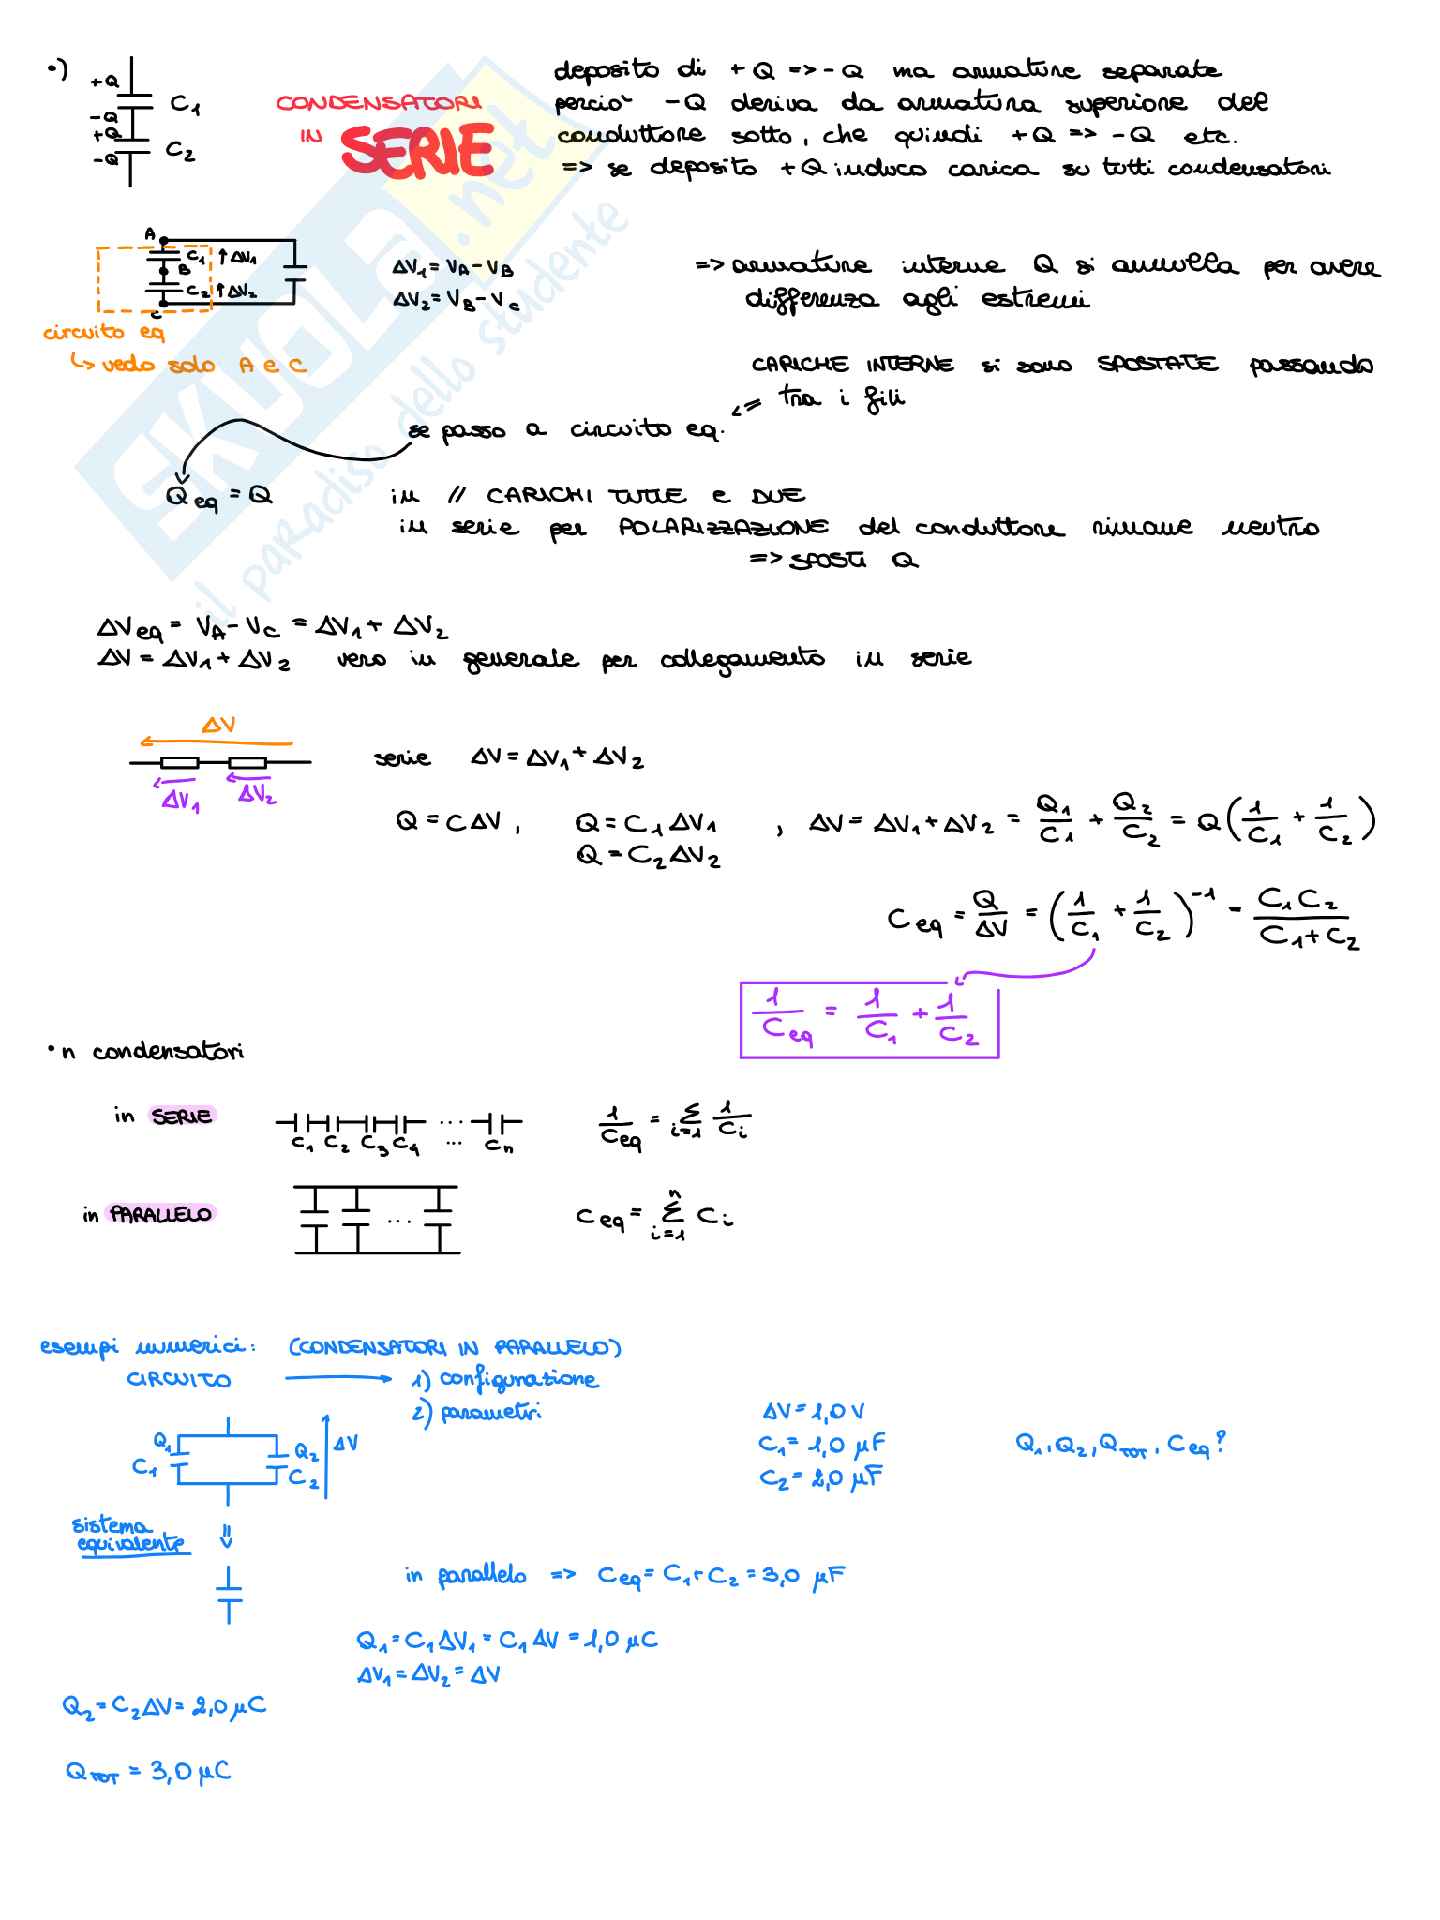 ·)
+Q
-Q
+Q
-Q
C1
C2
CONDENSATORI
IN SERIE
deposito di +Q => -Q ma armature separate
perciò -Q deriva da armatura superiore del
conduttore sotto, che quindi +Q => -Q etc.
=> se deposito +Q induco carica su tutti condensatori
A
C1 ↑ ΔV1
B
C2 ↑ ΔV2
C
circuito eq
↳ vedo solo A e C
ΔV1 = VA - VB
ΔV2 = VB - Vc
=> armature interne Q si annulla per avere
differenza agli estremi
CARICHE INTERNE si sono SPOSTATE passando
tra i fili
se passo a circuito eq.
Qeq = Q
in // CARICHI TUTTE e DUE
in serie per POLARIZZAZIONE del conduttore rimane neutro
=> SPOSTI Q
ΔVeq = VA - VC = ΔV1 + ΔV2
ΔV = ΔV1 + ΔV2 vero in generale per collegamento in serie
ΔV
ΔV1 ΔV2
serie ΔV = ΔV1 + ΔV2
Q = CΔV, Q = C1 ΔV1 , ΔV = ΔV1 + ΔV2 = Q1/C1 + Q2/C2 = Q(1/C1 + 1/C2)
Q = C2 ΔV2
Ceq = Q/ΔV = (1/C1 + 1/C2)^-1 = C1C2/(C1+C2)
1/Ceq = 1/C1 + 1/C2
· n condensatori
in SERIE
C1 C2 C3 C4 ... Cn
1/Ceq = Σ i=1 1/Ci
in PARALLELO
...
Ceq = Σ i=1 n Ci
esempi numerici: (CONDENSATORI IN PARALLELO)
CIRCUITO → 1) configurazione
2) parametri
ΔV = 1,0 V
C1 = 1,0 μF
C2 = 2,0 μF
Q1, Q2, QTOT, Ceq?
Q1
C1
Q2
C2
ΔV
sistema
equivalente
in parallelo => Ceq = C1 + C2 = 3,0 μF
Q1 = C1 ΔV1 = C1 ΔV = 1,0 μC
ΔV1 = ΔV2 = ΔV
Q2 = C2 ΔV = 2,0 μC
QTOT = 3,0 μC
SKUOLA.net
il paradiso dello studente